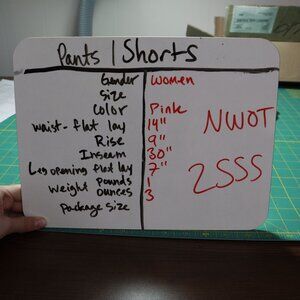 Pants | Shorts
Gender Women
Size
Color Pink
Waist-flat lay 14"
Rise 9"
Inseam 30"
Leg opening flat lay 7"
Weight pounds 1
ounces 3
Package size
NWOT
2SSS